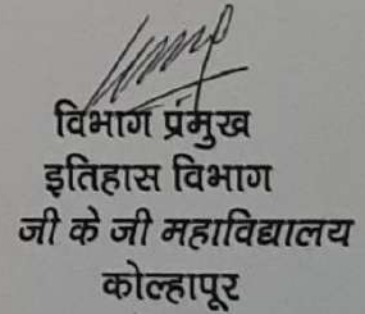 विभाग प्रमुख
इतिहास विभाग
जी के जी महाविद्यालय
कोल्हापूर